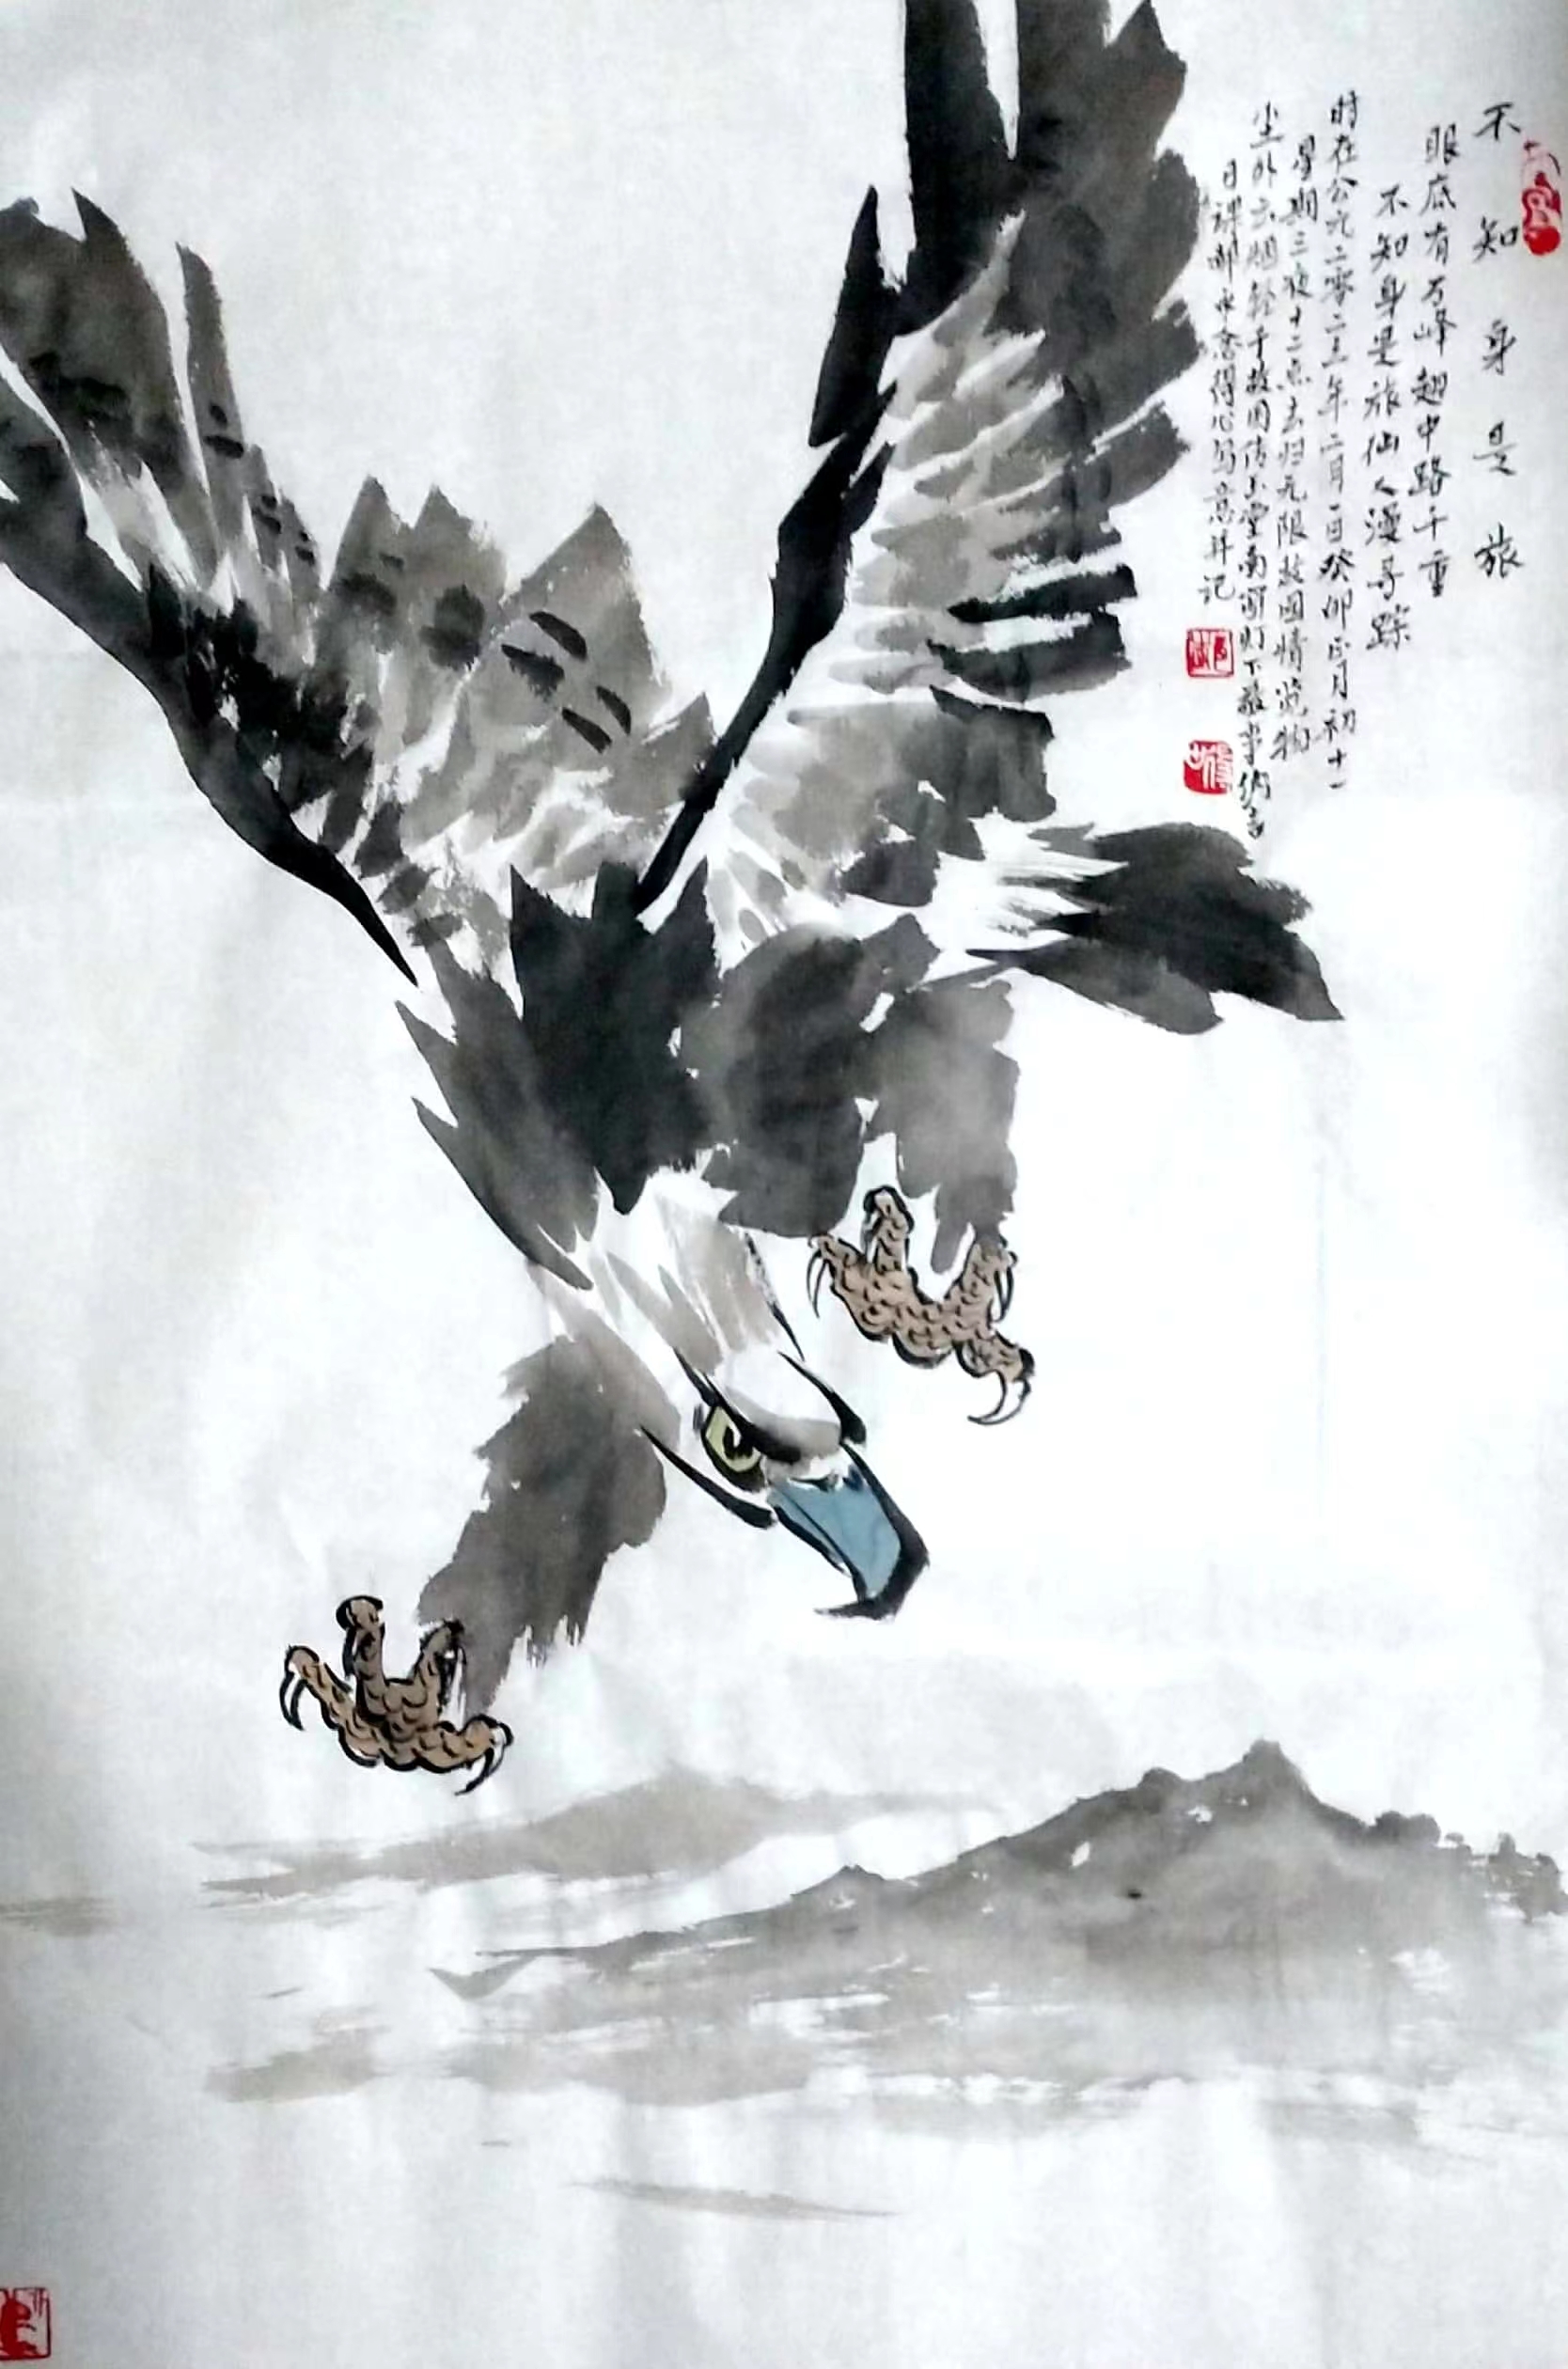 不知身是旅
眼底有万峰翅中路千重
不知身是旅仙人漫寻踪
时在公元二零二三年二月一日癸卯正月初十一
星期三夜十二点去归无限故国情览物
尘外云烟轻于故国传玉堂南窗灯下敬事
日课 得心写意并记